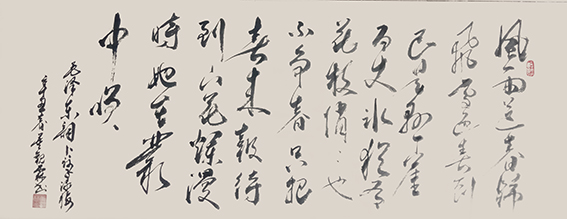 風雨送春歸
飛雪迎春到
已是懸崖
百丈冰猶有
花枝俏々也
不争春只把
春来報待
到山花爛漫
時她在叢
中笑
毛澤東詞卜算子咏梅
辛丑春